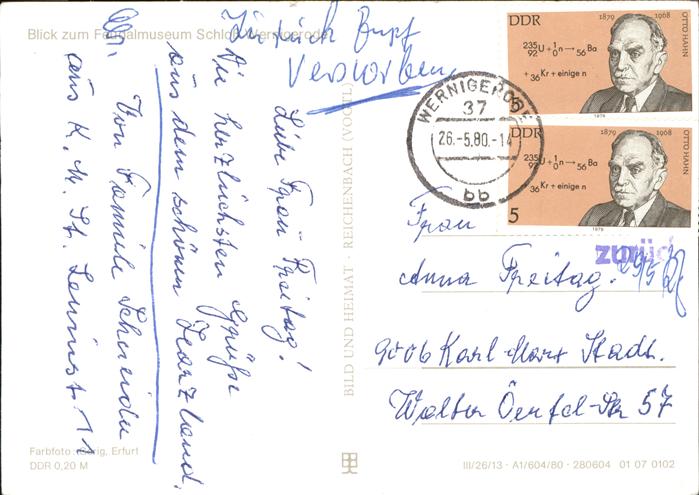 Blick zum Feudalmuseum Schloß Wernigerode
Zurück Empf
Verstorben
Liebe Frau Freitag!
Die herzlichsten Grüße
aus dem schönen Harzland,
Von Familie Schneider
aus K. M. St. Leninstr. 11
Farbfoto: Gärig, Erfurt
DDR 0,20 M
BILD UND HEIMAT · REICHENBACH (VOGTL
DDR 1879 1968
OTTO HAHN
235 92 U + 1 0 n → 56 Ba
+ 36 Kr + einige n
1979
DDR 1879 1968
OTTO HAHN
235 92 U + 1 0 n → 56 Ba
+ 36 Kr + einige n
5
1979
WERNIGERODE
37
26.-5.80.-14
bb
zurück
29/5
Frau
Anna Freitag.
9006 Karl-Marx Stadt.
Walter Oertel-Str 57
III/26/13 · A1/604/80 · 280604 01 07 0102